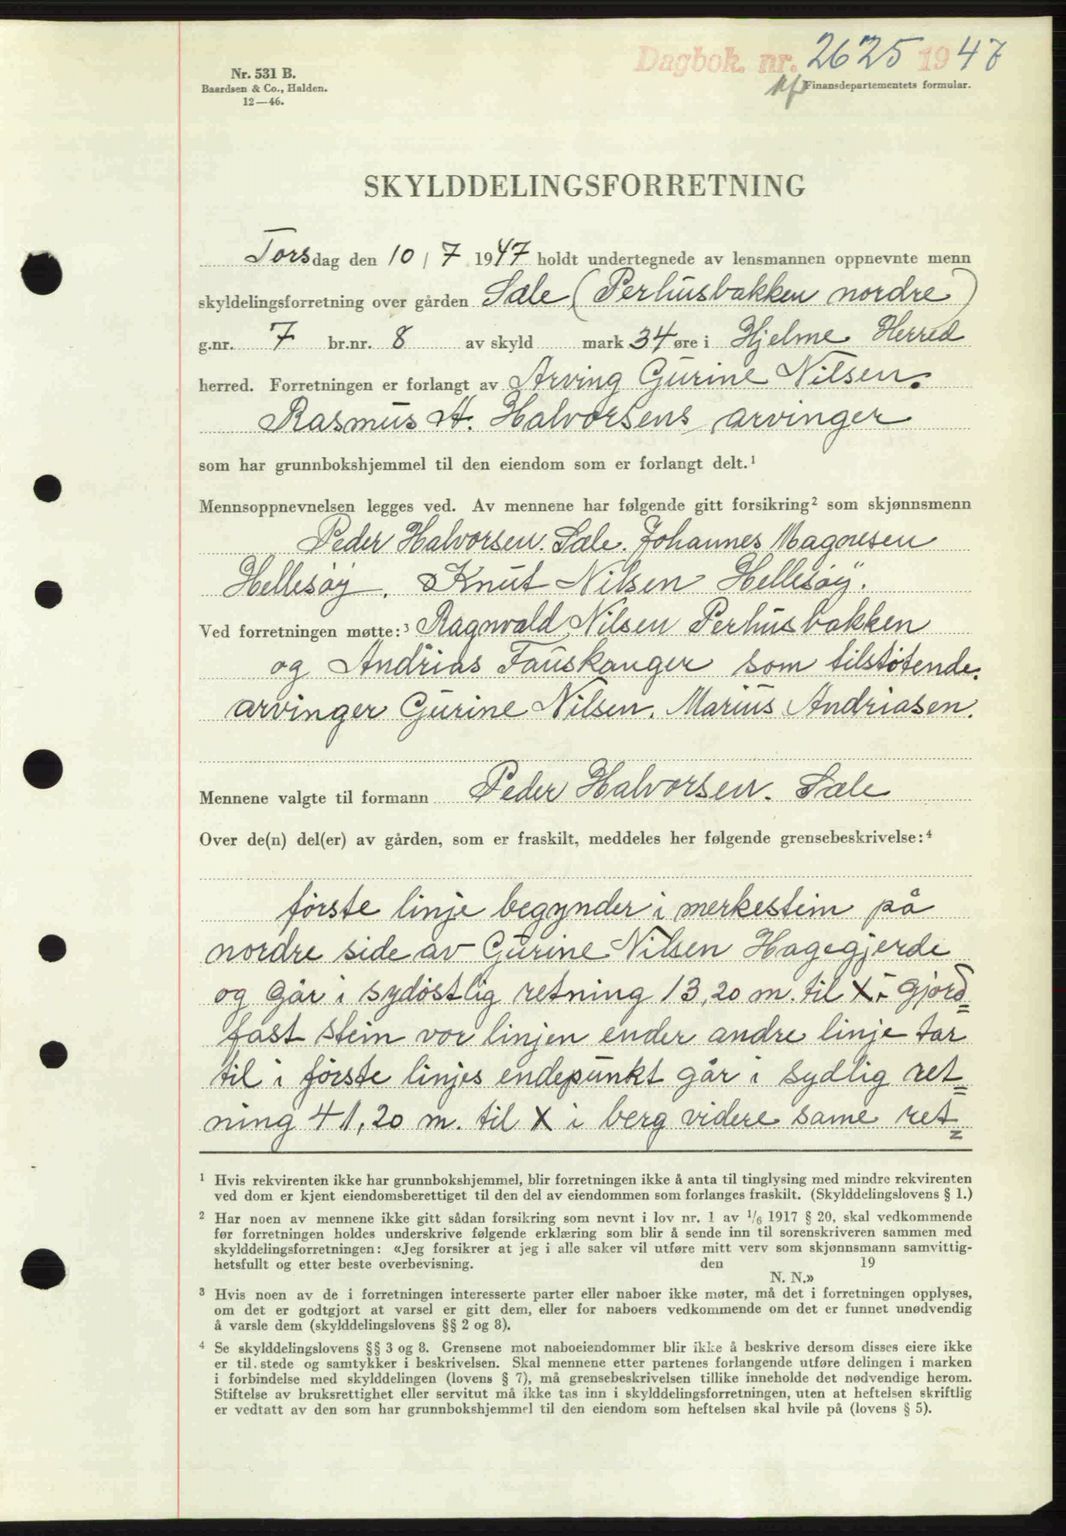 Dagbok nr. 2625 1947
Nr. 531 B.
Baardsen & Co., Halden.
12—46.
Finansdepartementets formular.
SKYLDDELINGSFORRETNING
Torsdag den 10/7 1947 holdt undertegnede av lensmannen oppnevnte menn
skyldelingsforretning over gården Sæle (Perhusbakken nordre)
g.nr. 7 br.nr. 8 av skyld mark 34 øre i Hjelme Herred
herred. Forretningen er forlangt av Arving Gurine Nilsen.
Rasmus H. Halvorsens arvinger
som har grunnbokshjemmel til den eiendom som er forlangt delt.¹
Mennsoppnevnelsen legges ved. Av mennene har følgende gitt forsikring² som skjønnsmenn
Peder Halvorsen. Sæle. Johannes Magnesen
Hellesøy. Knut Nilsen Hellesøy.
Ved forretningen møtte:³ Ragnvald Nilsen Perhusbakken
og Andrias Fauskanger som tilstøtende.
arvinger Gurine Nilsen. Marius Andriasen.
Mennene valgte til formann Peder Halvorsen. Sæle
Over de(n) del(er) av gården, som er fraskilt, meddeles her følgende grensebeskrivelse:⁴
første linje begynder i merkestein på
nordre side av Gurine Nilsen Hagegjerde
og går i sydøstlig retning 13,20 m. til X i gjord=
fast stein vor linjen ender andre linje tar
til i første linjes endepunkt går i sydlig ret=
ning 41,20 m. til X i berg videre same ret=
¹ Hvis rekvirenten ikke har grunnbokshjemmel, blir forretningen ikke å anta til tinglysing med mindre rekvirenten
ved dom er kjent eiendomsberettiget til den del av eiendommen som forlanges fraskilt. (Skylddelingslovens § 1.)
² Har noen av mennene ikke gitt sådan forsikring som nevnt i lov nr. 1 av 1/6 1917 § 20, skal vedkommende
før forretningen holdes underskrive følgende erklæring som blir å sende inn til sorenskriveren sammen med
skylddelingsforretningen: «Jeg forsikrer at jeg i alle saker vil utføre mitt verv som skjønnsmann samvittig-
hetsfullt og etter beste overbevisning. den 19
N. N.»
³ Hvis noen av de i forretningen interesserte parter eller naboer ikke møter, må det i forretningen opplyses,
om det er godtgjort at varsel er gitt dem, eller for naboers vedkommende om det er funnet unødvendig
å varsle dem (skylddelingslovens §§ 2 og 8).
⁴ Se skylddelingslovens §§ 3 og 8. Grensene mot naboeiendommer blir ikke å beskrive dersom disses eiere ikke
er til stede og samtykker i beskrivelsen. Skal mennene etter partenes forlangende utføre delingen i marken
i forbindelse med skylddelingen (lovens § 7), må grensebeskrivelsen tillike inneholde det nødvendige herom.
Stiftelse av bruksrettighet eller servitut må ikke tas inn i skylddelingsforretningen, uten at heftelsen skriftlig
er vedtatt av den som har grunnbokshjemmel til den eiendom som heftelsen skal hvile på (lovens § 5).